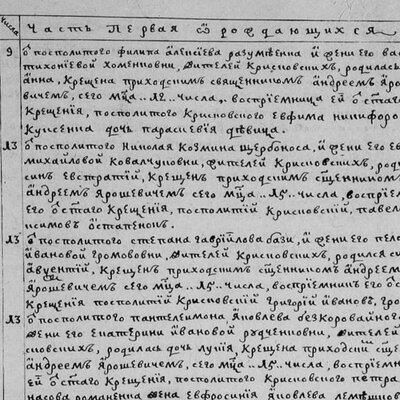 Числа
Часть Первая Ѿ рождающихся
9 Ꙋ посполитого филипа алеѯіева разумѣнна и жени его вас
тихоніевой хоменновни, жителей Крисновскихъ, родилась
анна, Крещена приходскимъ священникомъ андреемъ Яро
вичемъ, сего мца .. числа, воспріемница ей ѿ стаго
Крещенія, посполитого Крисновского Евфима никифоро
дочь параскевія дѣвица.
Ꙋ посполитого николая Козмина щербоноса, и жени его ев
михайловой Ковалчуновни, жителей Крисновскихъ, род
синъ Евстратій, Крещенъ приходскимъ сщенникомъ
андреемъ Ярошевичемъ сего мца .. числа, воспріем
его ѿ стаго Крещенія, посполитій Крисновскій, павел
симовъ остапенонъ.
Ꙋ посполитого степана гавріилова бази, и жени его пела
ивановой громововни, жителей Крисновскихъ, родился си
авуентій, Крещенъ приходскимъ сщенникомъ андреем
Ярошевичемъ сего мца .. числа, воспріемникъ его ѿ с
Крещенія посполитій Крисновскій григорій ивановъ, гро
Ꙋ посполитого пантелеимона яковлева безкоровайного
жени его Екатерини ивановой рудченновни, жителей
сновскихъ, родилась дочь лукія, Крещена приходскимъ сще
андреемъ Ярошевичемъ, сего мца .. числа, воспріем
ей ѿ стаго Крещенія, посполитого Крисновского петра
насова романенна жена Евфросинія яковлева лемешно